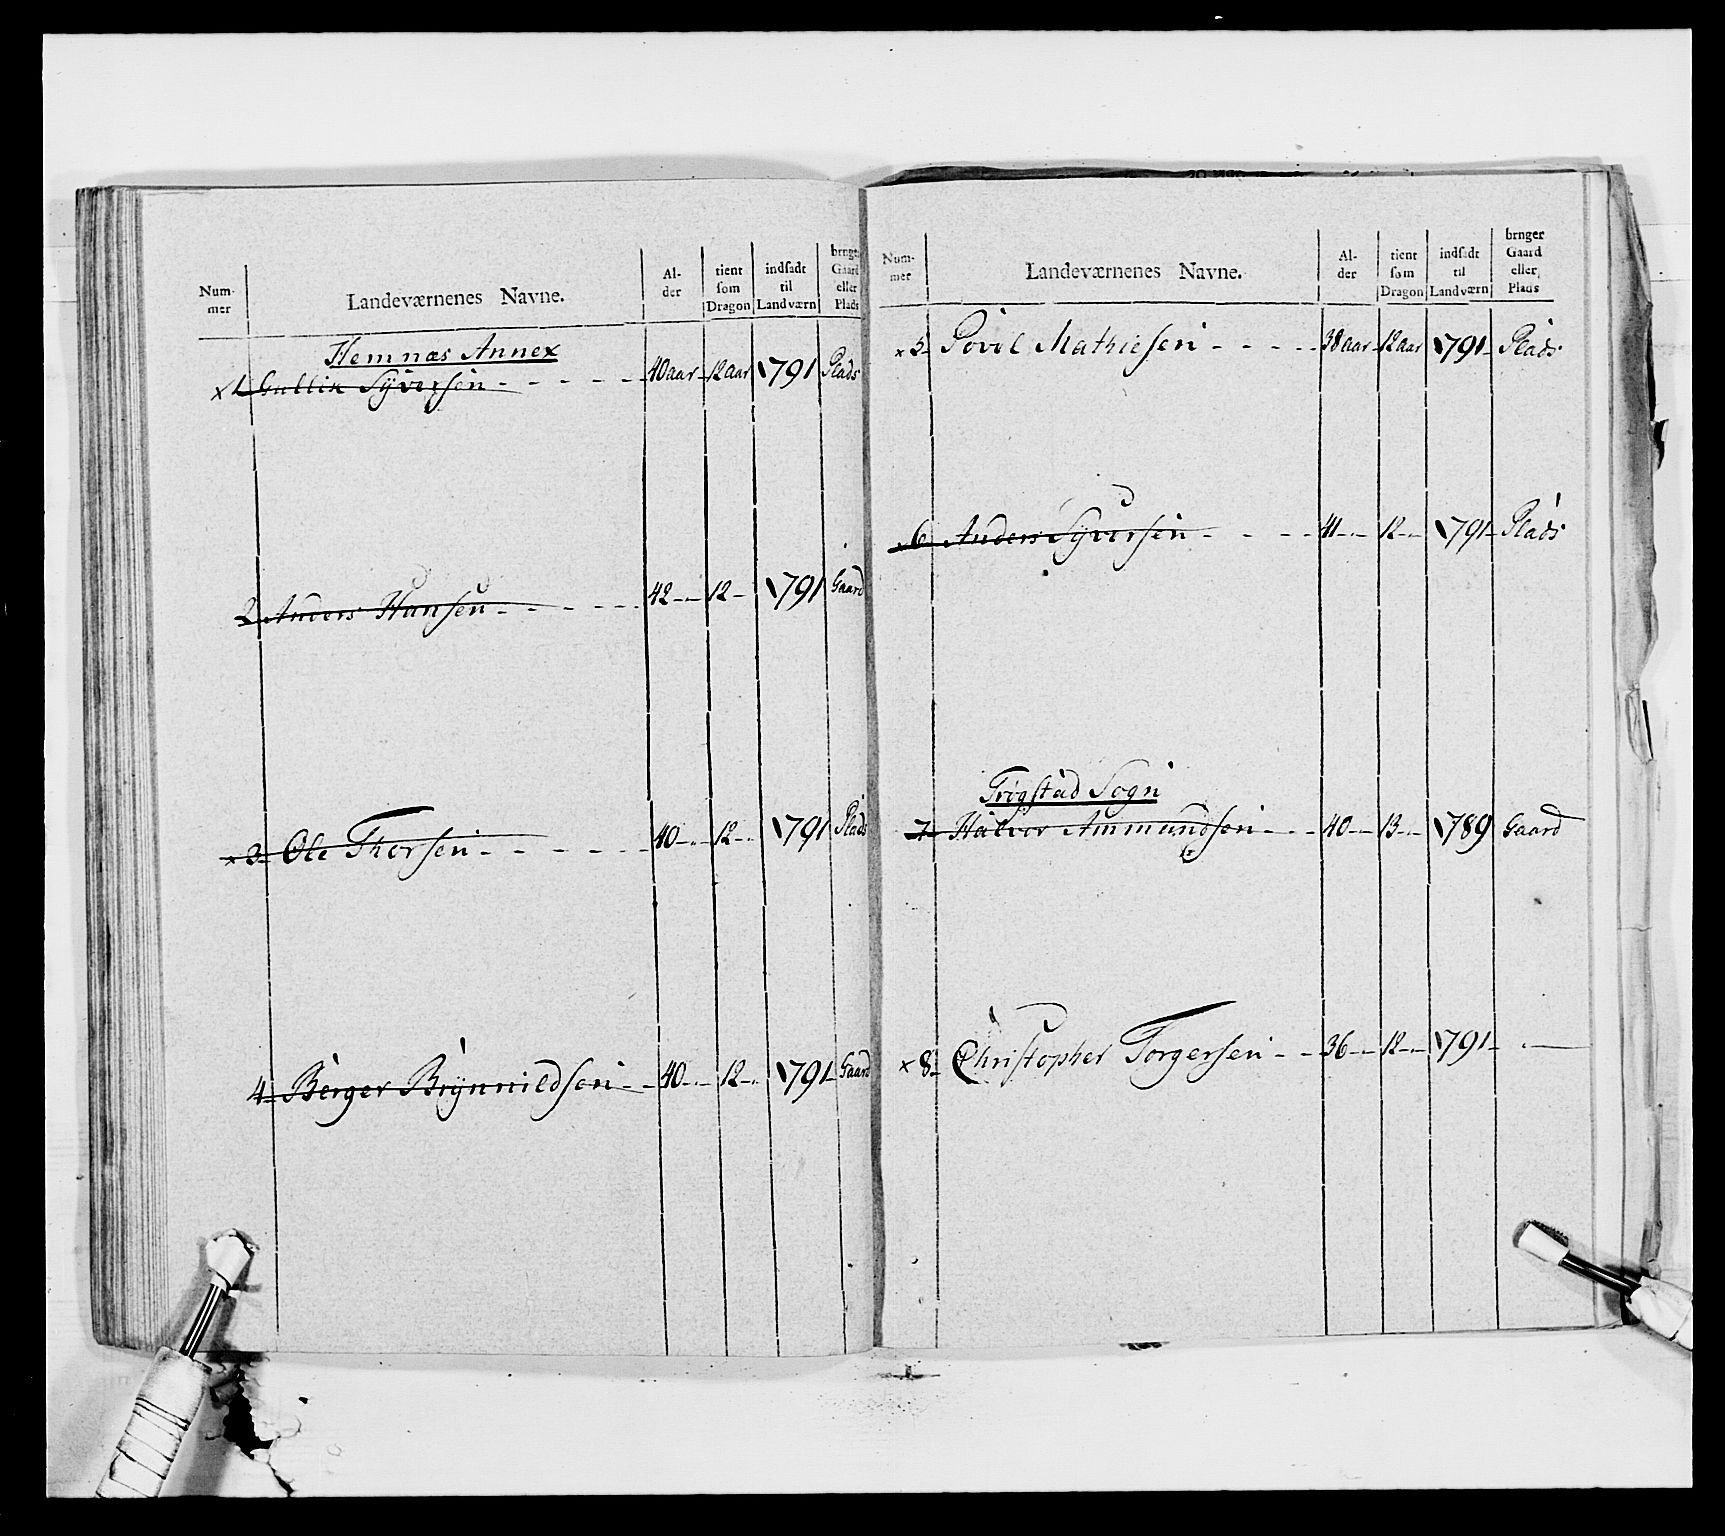 Num- mer | Landeværnenes Navne. | Al- der | tient som Dragon | indsadt til Landværn | bruger Gaard eller Plads
Hemnæs Annex
x 1 Gullik Syversen - - - - - 40 aar - 12 aar 1791 Plads
2 Anders Hansen - - - - - 42 - 12 - 1791 Gaard
x 3 - Ole Thorsen - - - - - 40 - 12 - 1791 Plads
4 - Børger Brynnildsen - - 40 - 12 - 1791 - Gaard
Num- mer | Landeværnenes Navne. | Al- der | tient som Dragon | indsadt til Landværn | bruger Gaard eller Plads
x 5 - Povel Mathiesen - - - - 38 aar - 12 aar 1791 - Plads
x 6 Anders Syversen - - - - 41 - 12 - 1791 - Plads
Trøgstad Sogn
7 - Halvor Ammundsen - - - 40 - 13 - 1789 Gaard
x 8 - Christopher Torgersen - - 36 - 12 - 1791 -